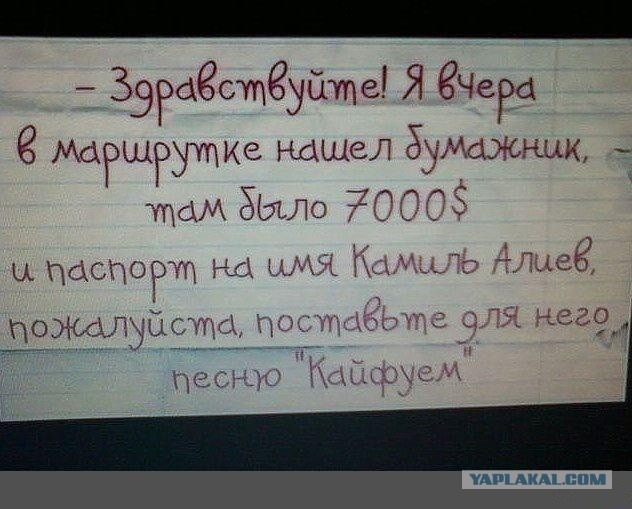 - Здравствуйте! Я вчера
в маршрутке нашел бумажник,
там было 7000$
и паспорт на имя Камиль Алиев,
пожалуйста, поставьте для него
песню "Кайфуем"
YAPLAKAL.COM